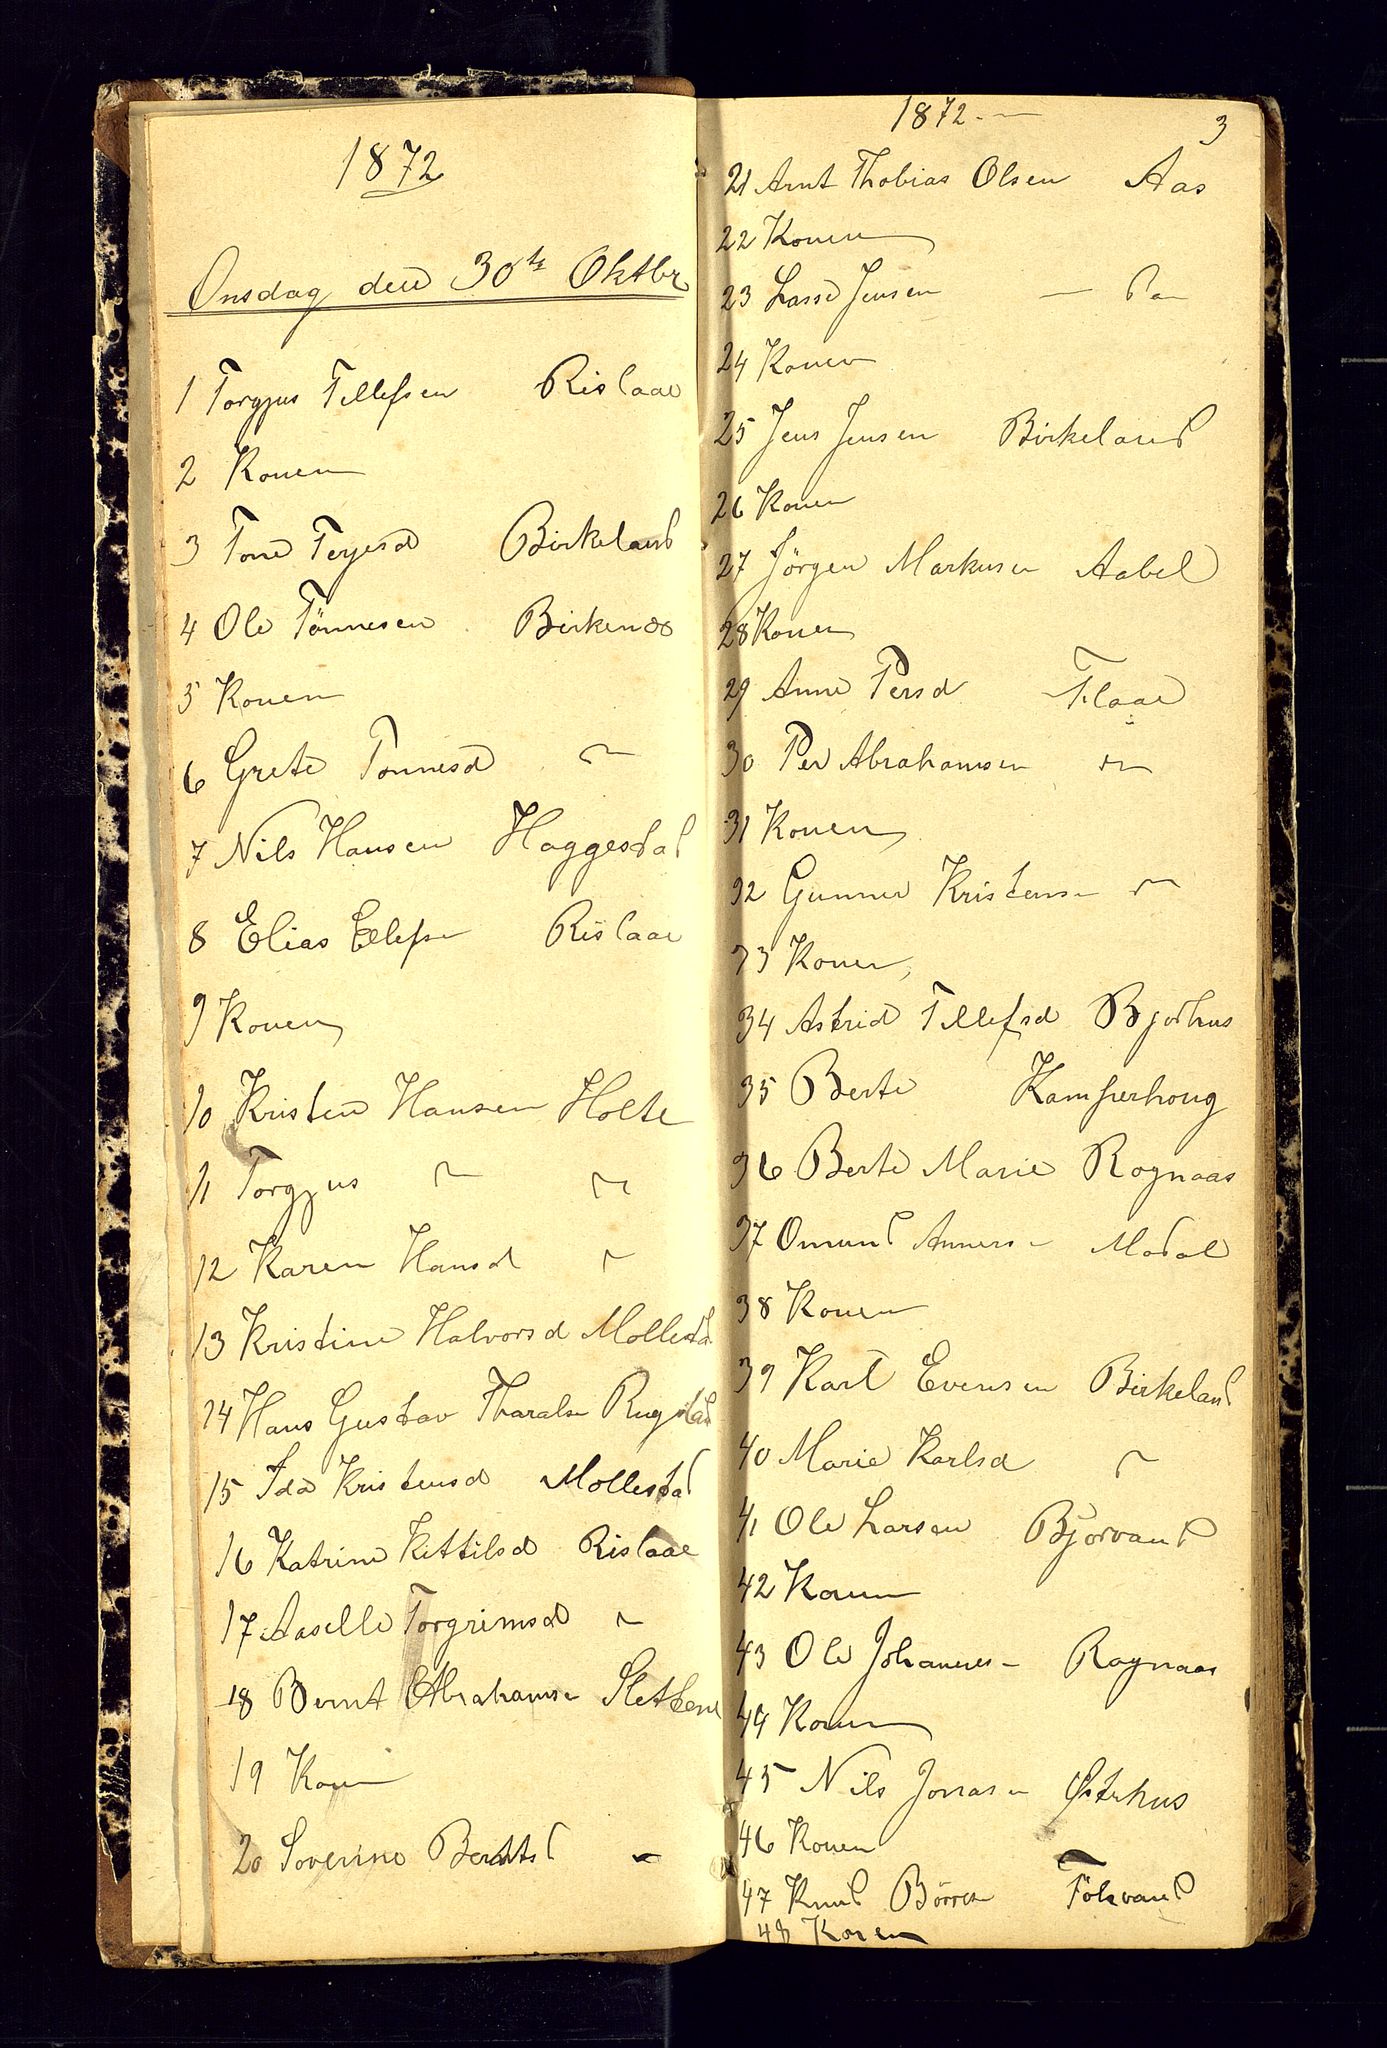 1872
Onsdag den 30te Oktbr
1 Torgjus Tellefsen Rislaae
2 Konen
3 Tone Terjesd Birkeland
4 Ole Tönnesen Birkenes
5 Konen
6 Grete Tonnesd "
7 Nils Hansen Haggestal
8 Elias Ellefsen Rislaae
9 Konen
10 Kristen Hansen Holte
11 Torgjus " "
12 Karen Hansd "
13 Kristine Halvorsd Mollestad
14 Hans Gustav Tharalsn Rugslad
15 Ida Kristensd Mollestad
16 Katrine Kittilsd Rislaae
17 Aaselle Torgrimsd "
18 Bernt Abrahamsen
19 Konen
20 Soverine Berntsd "
1872 — 3
21 Arnt Thobias Olsen Aas
22 Konen
23 Lasse Jensen — Do
24 Konen
25 Jens Jensen Birkeland
26 Konen
27 Jörgen Markusen Aabel
28 Konen
29 Anne Persd Flaae
30 Per Abrahamsen "
31 Konen
32 Gunner Kristensen "
33 Konen
34 Astrid Tellefsd Bjorhus
35 Berte Kamperhoug
36 Berte Marie Rognaas
37 Omund Annersen Modal
38 Konen
39 Karl Evensen Birkeland
40 Marie Karlsd "
41 Ole Larsen Bjorvand
42 Konen
43 Ole Johannesen Rognaas
44 Konen
45 Nils Jonasen Østerhus
46 Konen
47 Knud Börresen Tölvand
48 Konen